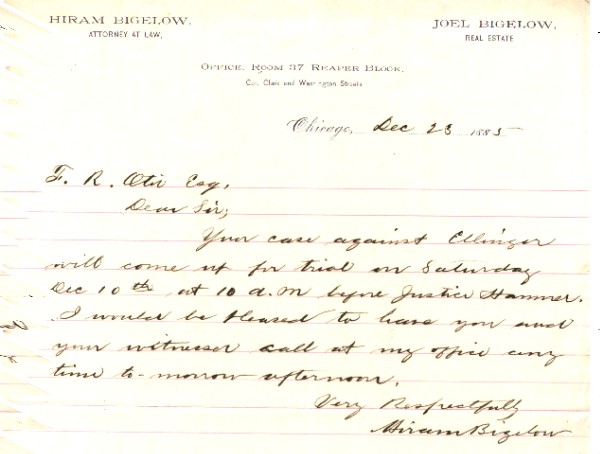 HIRAM BIGELOW,
ATTORNEY AT LAW,
JOEL BIGELOW,
REAL ESTATE
OFFICE, ROOM 37 REAPER BLOCK,
Cor. Clark and Washington Streets
Chicago, Dec 23 1885
F. R. Otis Esq,
Dear Sir,
Your case against Ellinger
will come up for trial on Saturday
Dec 10th at 10 a.m before Justice Hammer.
I would be pleased to have you and
your witnesses call at my office any
time to-morrow afternoon.
Very Respectfully
Hiram Bigelow